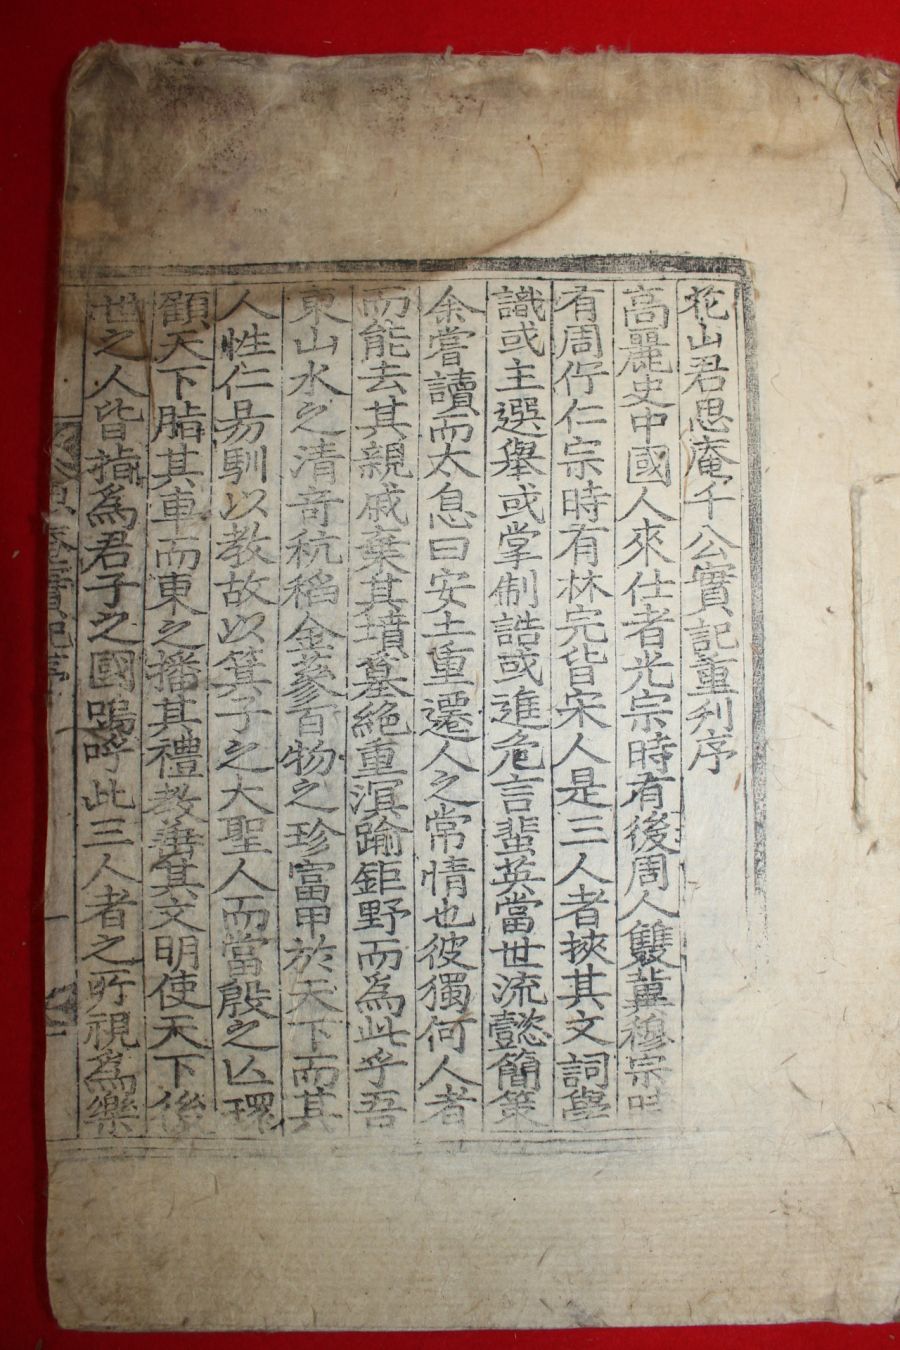 花山君思庵千公實記重刋序
高麗史中國人來仕者光宗時有後周人雙冀穆宗時
有周佇仁宗時有林完皆宋人是三人者挾其文詞學
識或主選舉或掌制誥或進危言蜚英當世流懿簡策
余嘗讀而太息曰安土重遷人之常情也彼獨何人者
而能去其親戚棄其墳墓絶重溟踰鉅野而爲此乎吾
東山水之清竒秔稻金蔘百物之珍富甲於天下而其
人性仁昜馴以教故以箕子之大聖人而當殷之亾環
顧天下脂其車而東之播其禮教無其文明使天下後
世之人皆指爲君子之國嗚呼此三人者之所視爲樂
思庵實記序 一